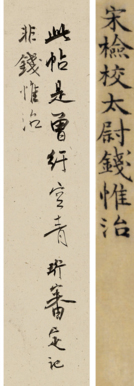 宋檢校太尉錢惟治
此帖是曾紆空青珩審定記
非錢惟治